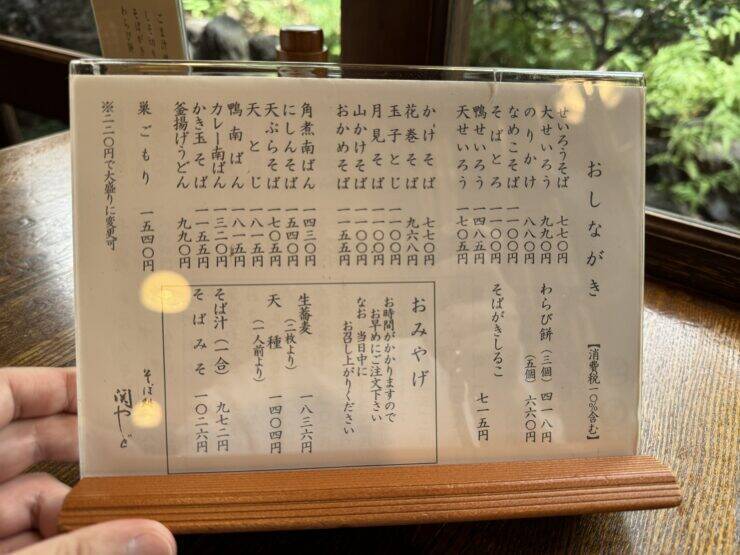 おしながき 【消費税一〇%含む】
せいろうそば 七七〇円
大せいろう 九九〇円
のりかけ 八八〇円
なめこそば 一一〇〇円
そばとろ 一一〇〇円
鴨せいろう 一四八五円
天せいろう 一七〇五円
わらび餅 (三個) 四一八円
(五個) 六六〇円
そばがきしるこ 七一五円
かけそば 七七〇円
花巻そば 九六八円
玉子とじ 一一〇〇円
月見そば 一一〇〇円
山かけそば 一一〇〇円
おかめそば 一一五五円
角煮南ばん 一四三〇円
にしんそば 一五四〇円
天ぷらそば 一七〇五円
天とじ 一八一五円
鴨南ばん 一八一五円
カレー南ばん 一三二〇円
かき玉そば 一一五五円
釜揚げうどん 九九〇円
巣ごもり 一五四〇円
※二二〇円で大盛りに変更可
おみやげ
お時間がかかりますので
お早めにご注文下さい
なお 当日中に
お召し上がりください
生蕎麦 (二枚より) 一八三六円
天種 (一人前より) 一四〇四円
そば汁 (一合) 九七二円
そばみそ 一〇二六円